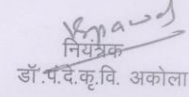 नियंत्रक
डॉ.पं.दे.कृ.वि. अकोला